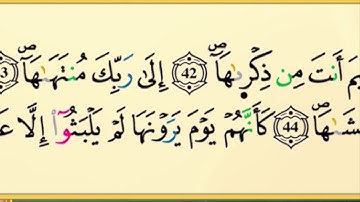 يمَ أَنتَ مِن ذِكْرَىٰهَآ ۝42 إِلَىٰ رَبِّكَ مُنتَهَىٰهَآ
شَىٰهَا ۝44 كَأَنَّهُمْ يَوْمَ يَرَوْنَهَا لَمْ يَلْبَثُوٓا۟ إِلَّا عَ